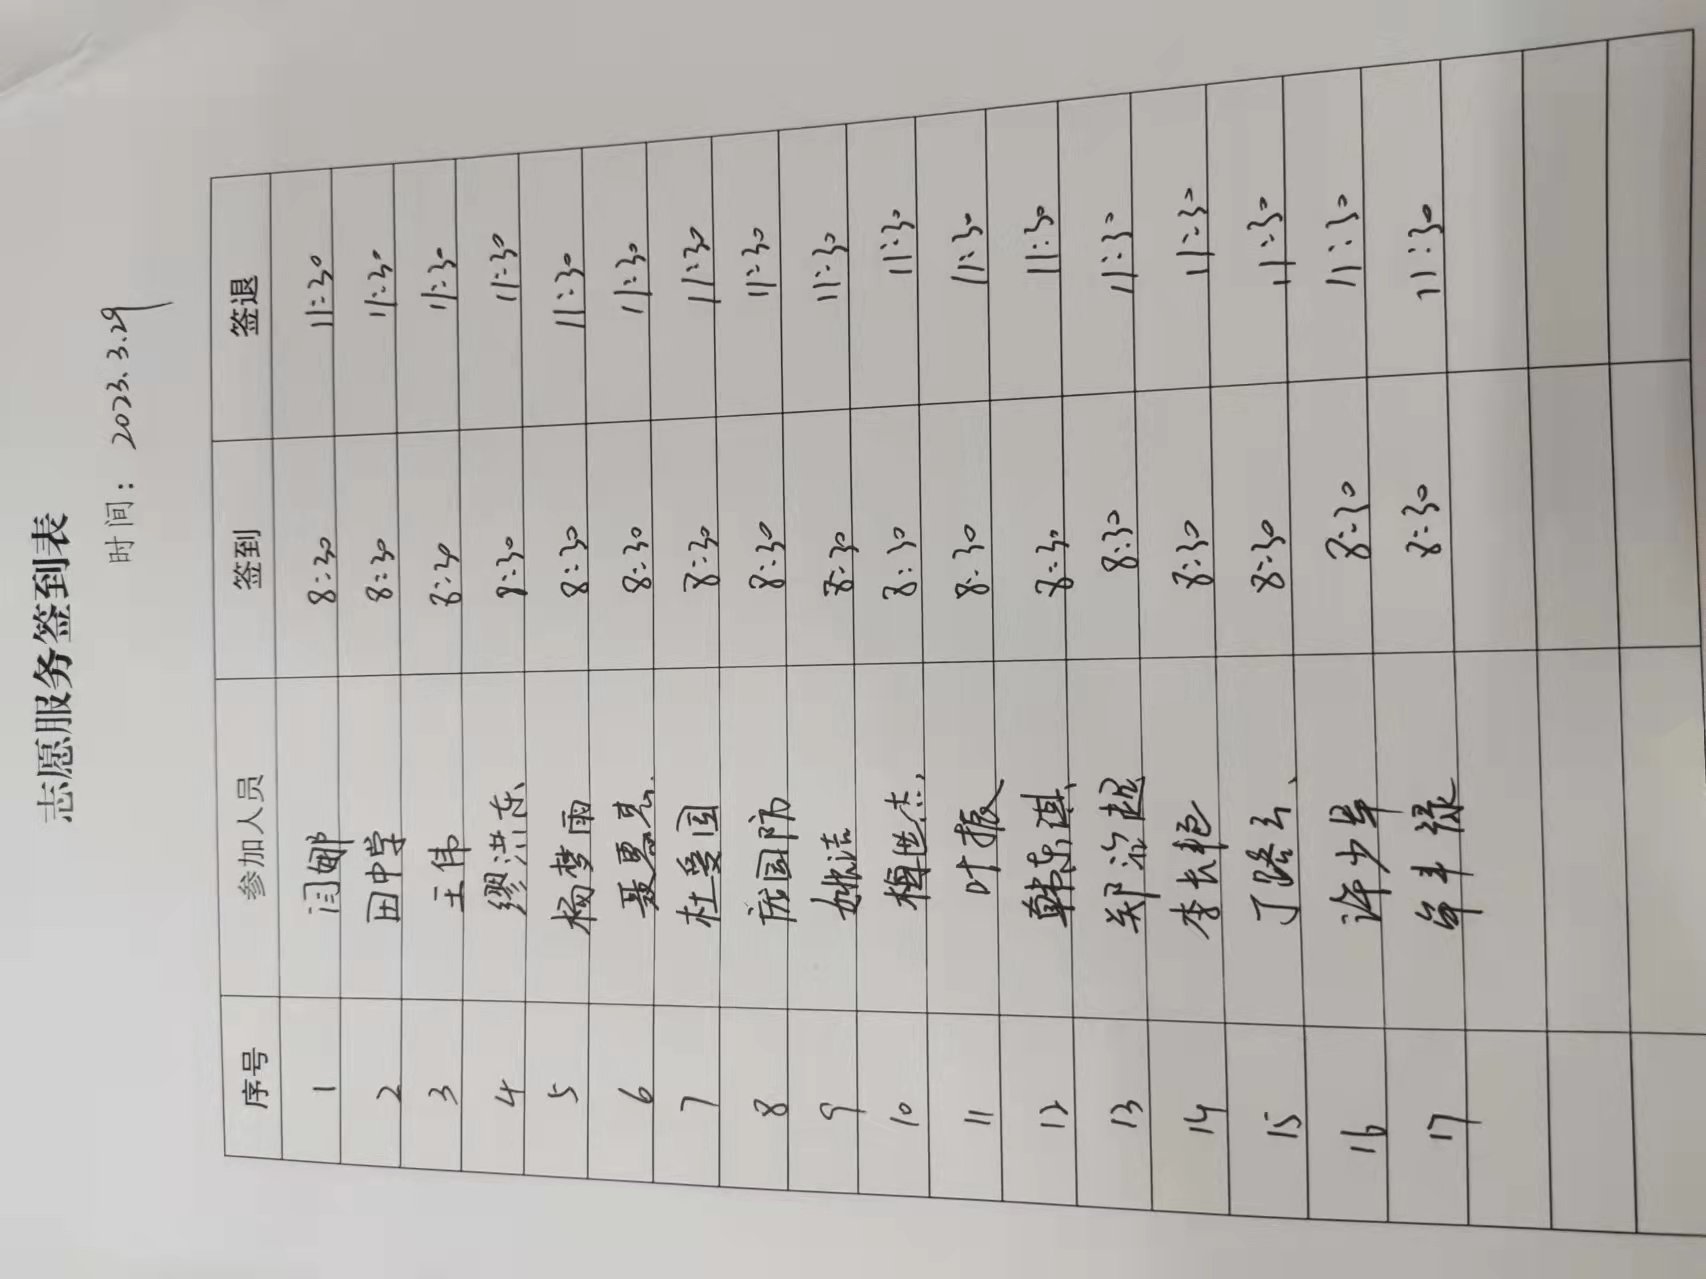 志愿服务签到表
时间：2023.3.29
序号 参加人员 签到 签退
1 闫娜 8:30 11:30
2 田中学 8:30 11:30
3 王伟 8:30 11:30
4 缪洪东 8:30 11:30
5 杨梦雨 8:30 11:30
6 聂 8:30 11:30
7 杜爱国 8:30 11:30
8 庞国防 8:30 11:30
9 姚洁 8:30 11:30
10 梅世杰 8:30 11:30
11 叶振 8:30 11:30
12 韩东淇 8:30 11:30
13 郑 超 8:30 11:30
14 李长艳 8:30 11:30
15 丁路云 8:30 11:30
16 许少华 8:30 11:30
17 8:30 11:30